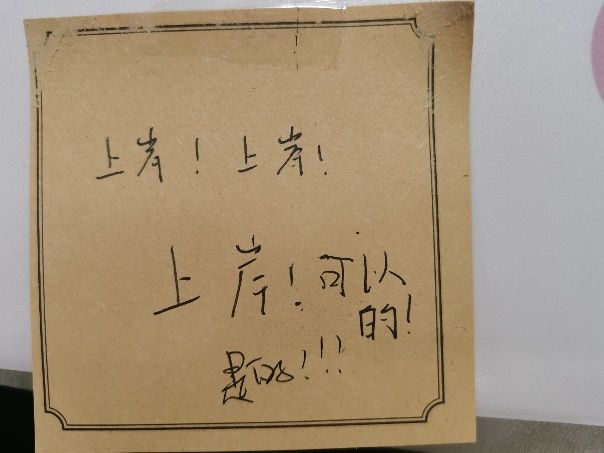 上岸！上岸！
上岸！可以
的！
是的！！！